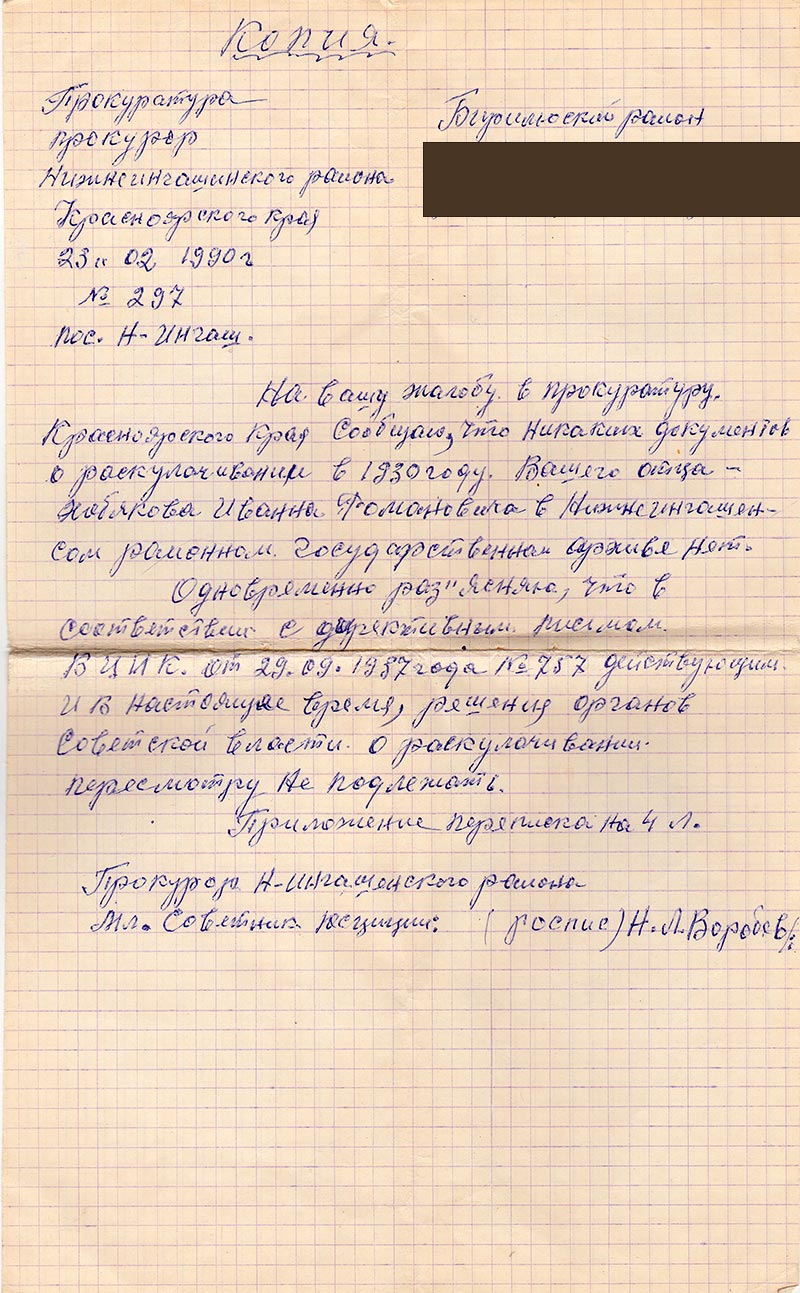 Копия.
Прокуратура
прокурор
Нижнеингашинского района
Красноярского края
23 и 02 1990 г
№ 297
пос. Н-Ингаш.
Бирилюский район
На вашу жалобу. в прокуратуру.
Красноярского Края Сообщаю, что никаких документов
о раскулачивании в 1930 году. Вашего отца –
Ивана Романовича в Нижнеингашен-
сом районном. Государственном архиве нет.
Одновременно раз"ясняю, что в
соответствии с директивным письмом.
ВЦИК. от 29.09.1937 года № 757 действующим.
и в настоящее время, решения органов
Советской власти. о раскулачивании.
пересмотру не подлежать.
Приложение переписка на 4 л.
Прокурор Н-Ингашенского района
Мл. Советник юстиции. (роспис) Н.Л. Воробев